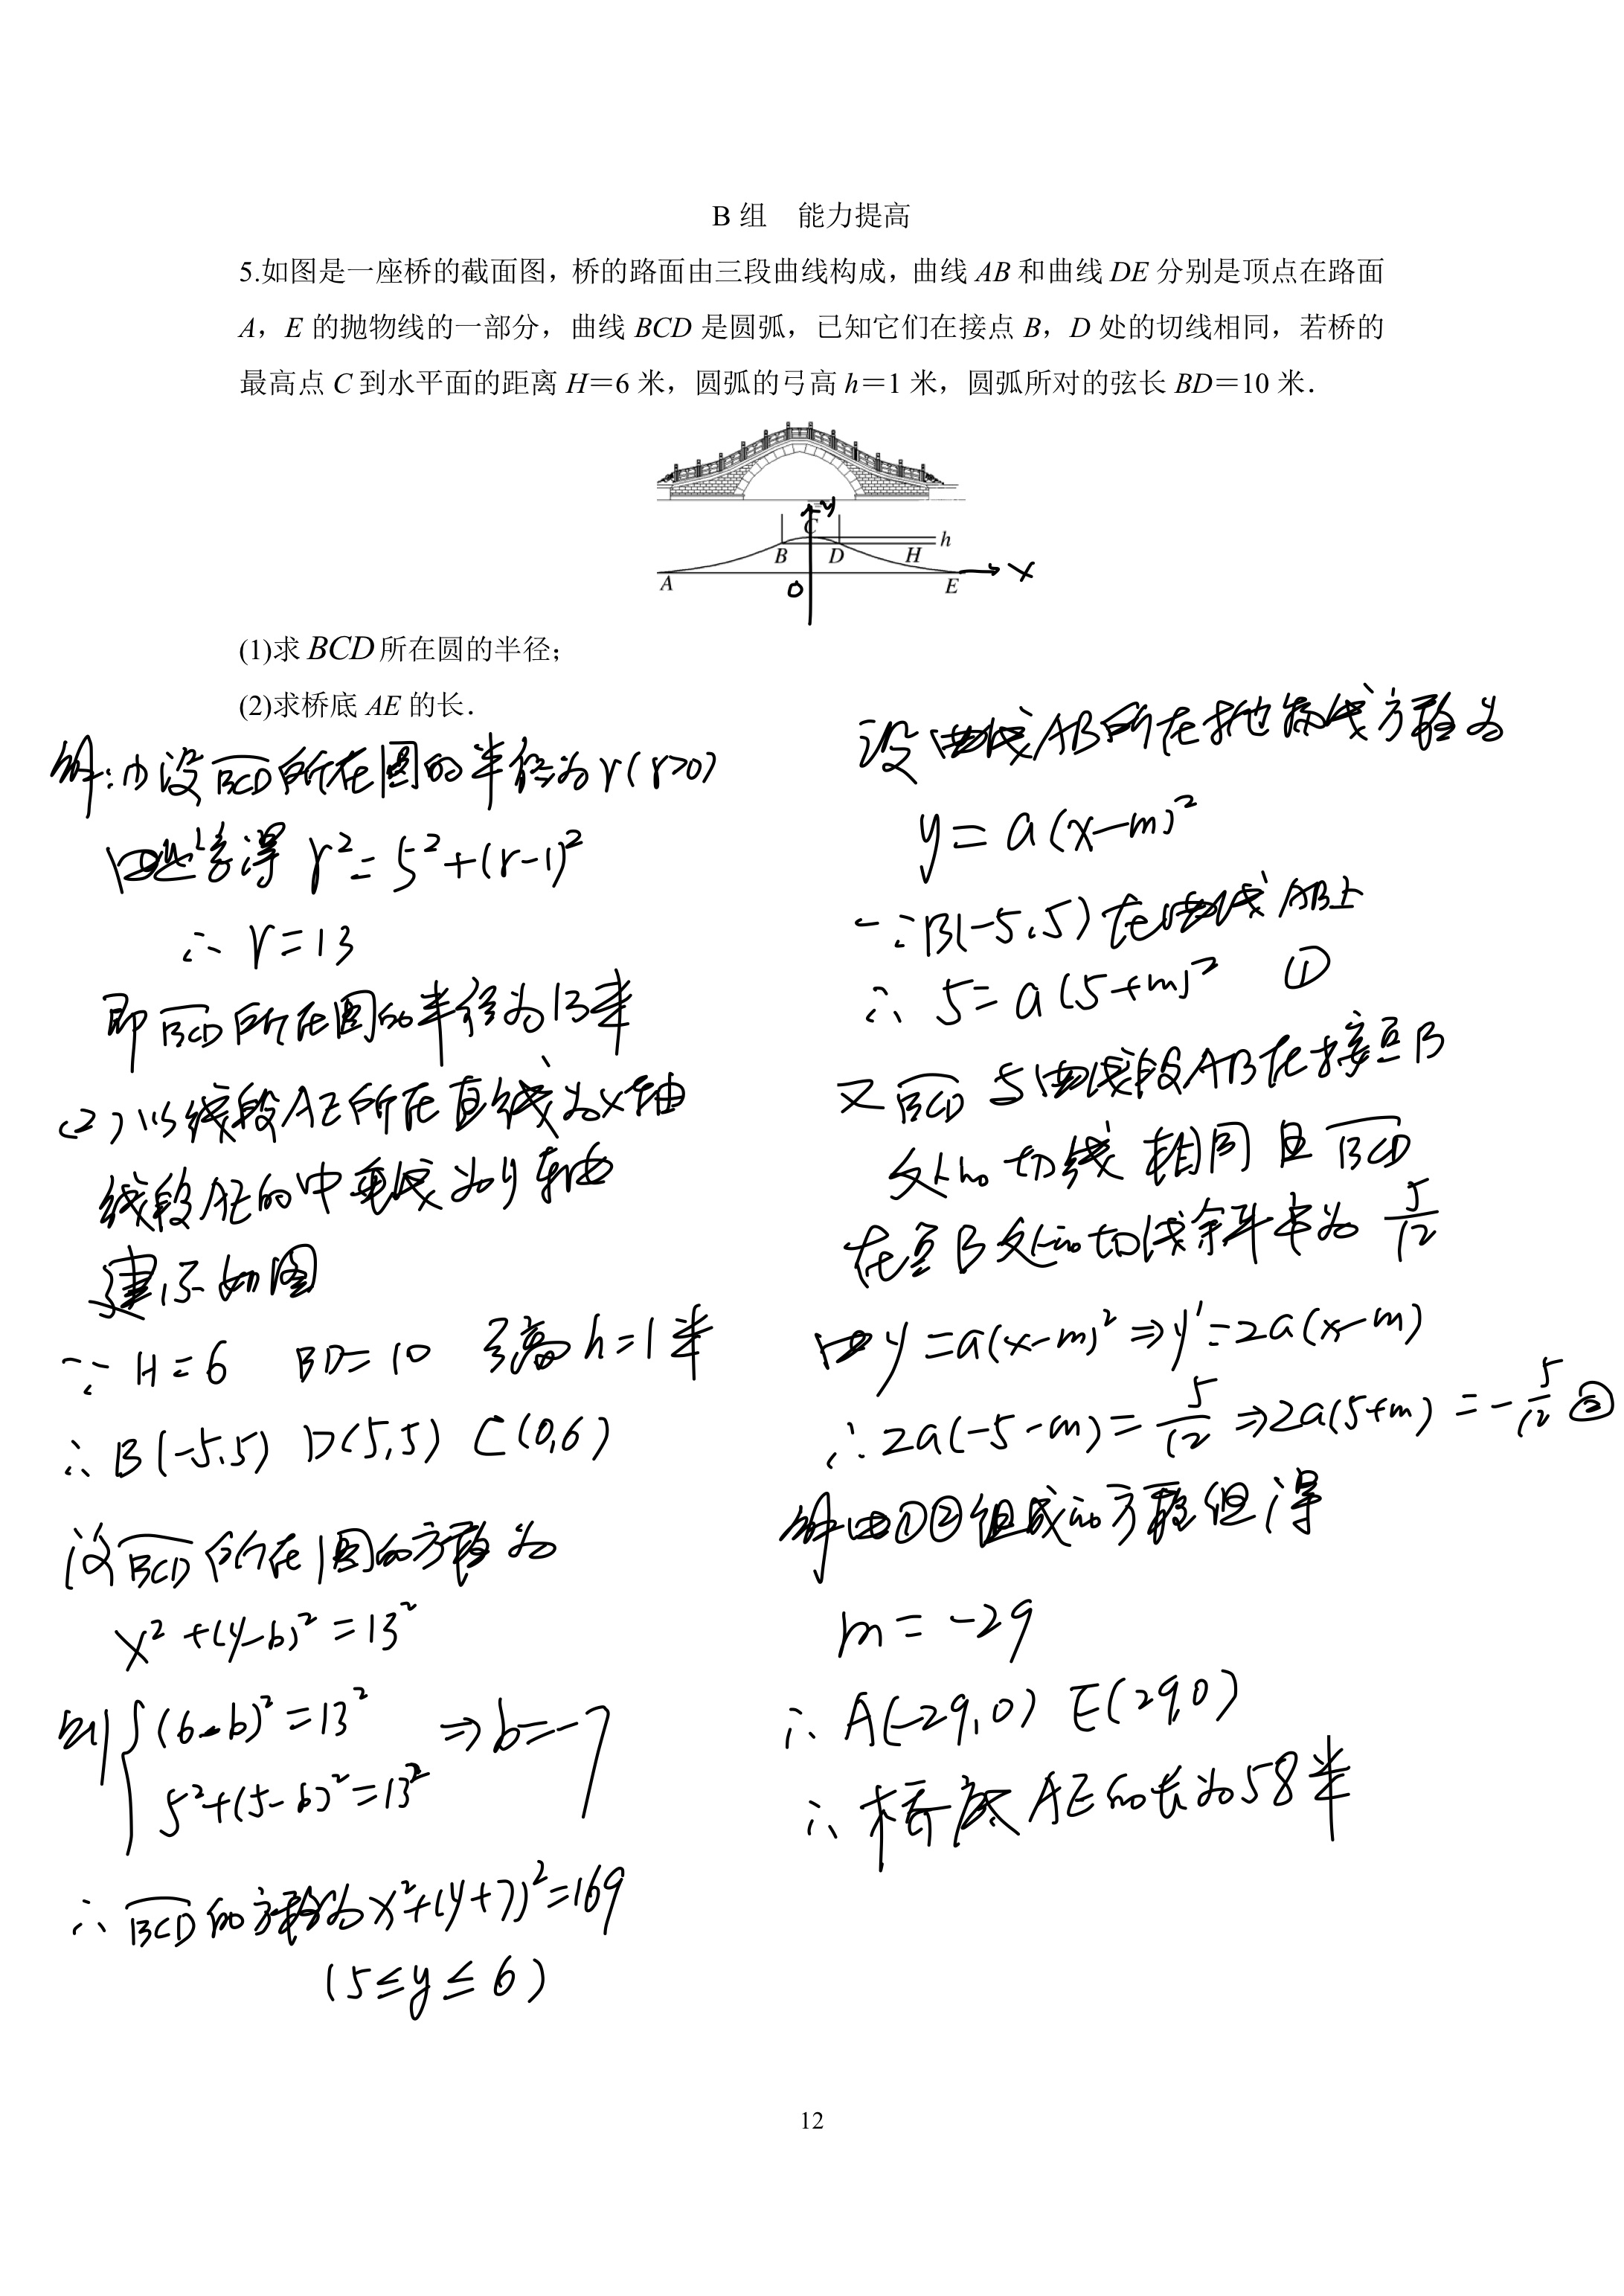 B 组 能力提高
5.如图是一座桥的截面图，桥的路面由三段曲线构成，曲线 AB 和曲线 DE 分别是顶点在路面
A，E 的抛物线的一部分，曲线 BCD 是圆弧，已知它们在接点 B，D 处的切线相同，若桥的
最高点 C 到水平面的距离 H＝6 米，圆弧的弓高 h＝1 米，圆弧所对的弦长 BD＝10 米．
y
C
h
B D H
A O E x
(1)求 BCD 所在圆的半径；
(2)求桥底 AE 的长．
解:(1)设BCD所在圆的半径为r(r>0)
由题意得 r²=5²+(r-1)²
∴ r=13
即BCD所在圆的半径为13米
(2)以线段AE所在直线为x轴
线段AE的中垂线为y轴
建系如图
∵ H=6 BD=10 弓高h=1米
∴ B(-5,5) D(5,5) C(0,6)
设BCD所在圆的方程为
x²+(y-b)²=13²
则{(6-b)²=13²
5²+(5-b)²=13² ⇒b=-7
∴ BCD的方程为x²+(y+7)²=169
(5≤y≤6)
设曲线AB所在抛物线方程为
y=a(x-m)²
∵B(-5,5)在曲线AB上
∴ 5=a(5+m)² ①
又BCD与曲线段AB在接点B
处的切线相同且BCD
在点B处的切线斜率为 5/12
由y=a(x-m)²⇒y'=2a(x-m)
∴2a(-5-m)=5/12⇒2a(5+m)=-5/12②
解由①②组成的方程组得
m=-29
∴ A(-29,0) E(29,0)
∴ 桥底AE的长为58米
12